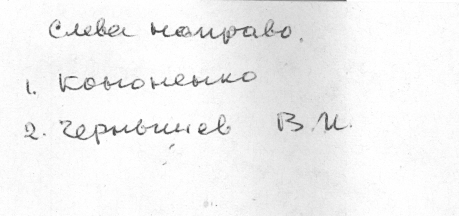 Слева направо.
1. Кононенко
2. Чернышев В.И.